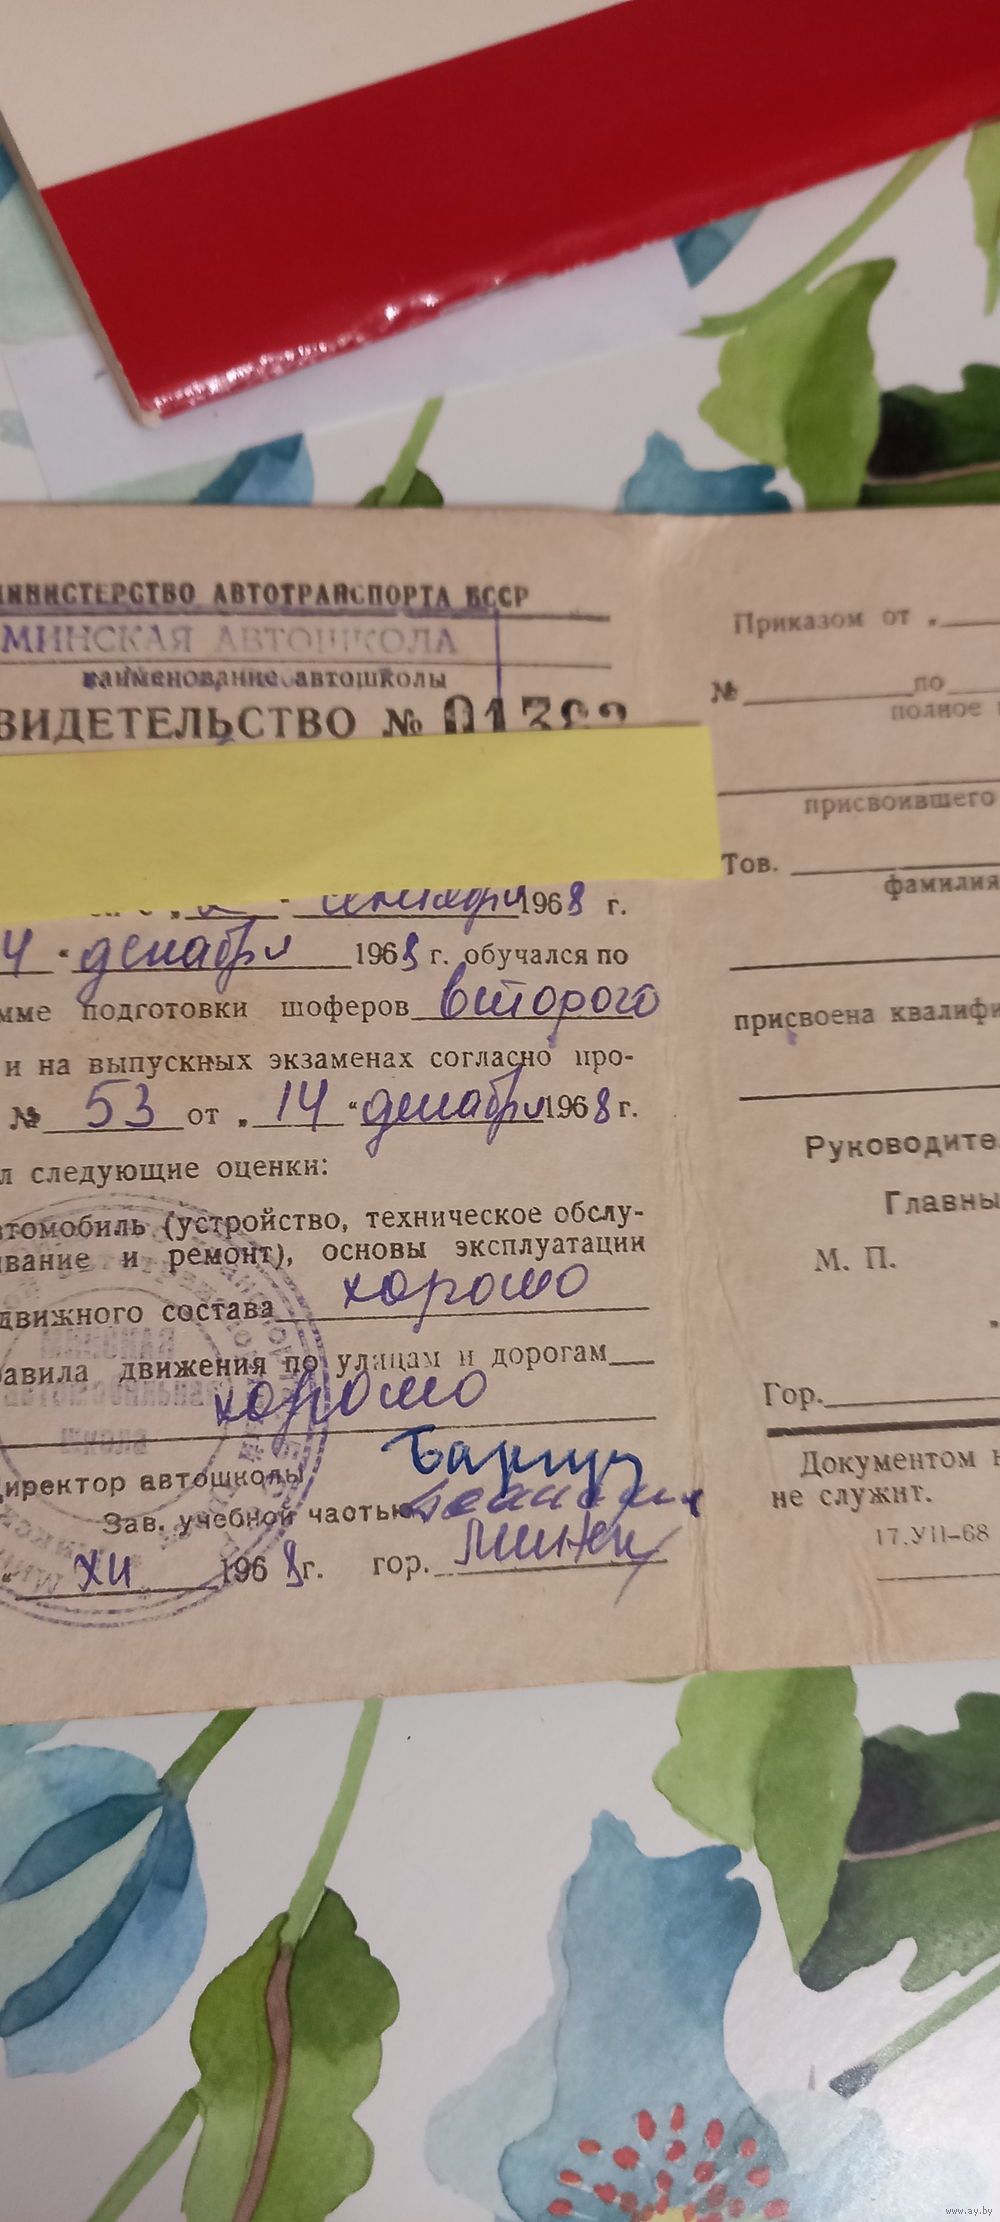 МИНИСТЕРСТВО АВТОТРАНСПОРТА БССР
МИНСКАЯ АВТОШКОЛА
наименование автошколы
ВИДЕТЕЛЬСТВО №
сентября 1968 г.
4 " декабря 1968 г. обучался по
мме подготовки шоферов второго
и на выпускных экзаменах согласно про-
№ 53 от „ 14 " декабря 1968 г.
л следующие оценки:
втомобиль (устройство, техническое обслу-
ивание и ремонт), основы эксплуатации
движного состава хорошо
равила движения по улицам и дорогам
хорошо
Директор автошколы
Зав. учебной частью
" XII 1968 г. гор. Минск
Приказом от „
№ по
полное
присвоившего
Тов.
фамилия
присвоена квалифи
Руководите
Главны
М. П.
„
Гор.
Документом н
не служит.
17.VII-68
www.ay.by